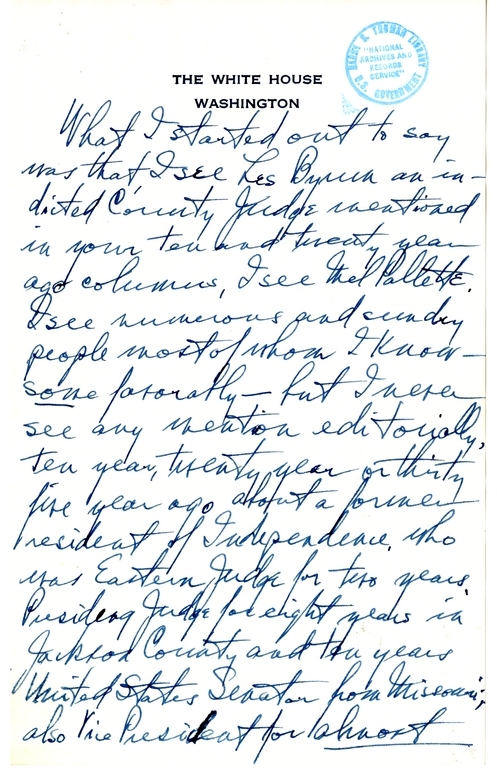 HARRY S. TRUMAN LIBRARY
"NATIONAL
ARCHIVES AND
RECORDS
SERVICE"
U.S. GOVERNMENT
THE WHITE HOUSE
WASHINGTON
What I started out to say
was that, I see Les Byrum an in-
dicted County Judge mentioned
in your ten and twenty year
ago columns, I see Mel Pallette.
I see numerous and sundry
people most of whom I know -
some favorably - but I never
see any mention editorially,
ten year, twenty year or thirty
five year ago about a former
resident of Independence, who
was Eastern Judge for two years,
Presiding Judge for eight years in
Jackson County and ten years
United States Senator from Missouri,
also Vice President for almost